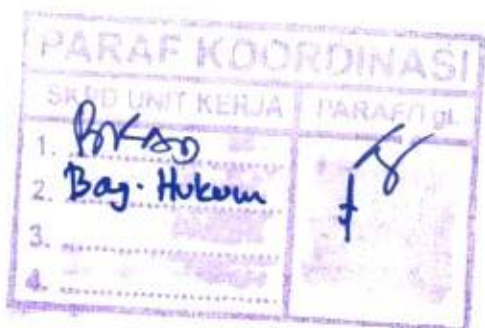 PARAF KOORDINASI
SKPD UNIT KERJA PARAF/Tgl.
1. BKAD
2. Bag. Hukum
3.
4.